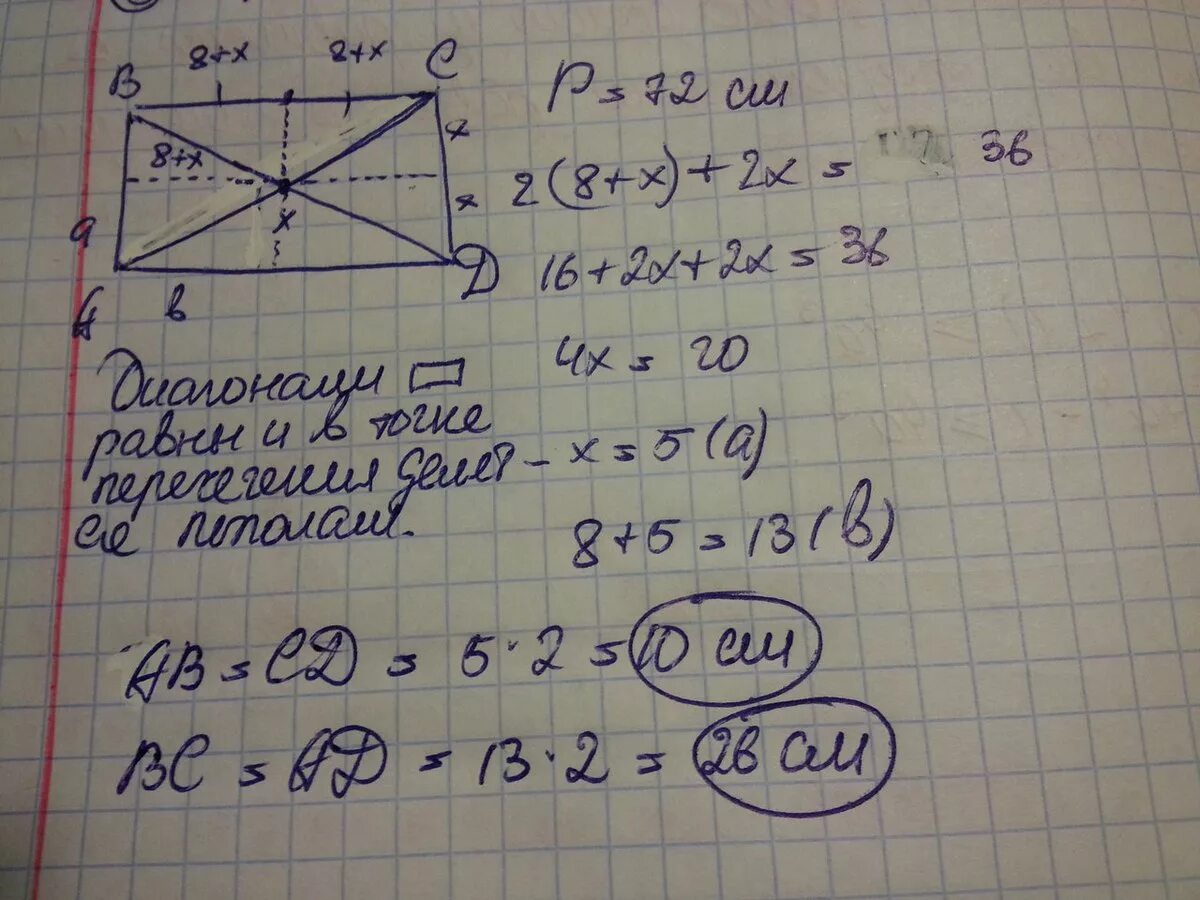 8+x 8+x
B C
8+x x
x
x
a
A в Д
P = 72 см
2(8+x)+2x = 36
16+2x+2x = 36
4x = 20
x = 5 (a)
8+5 = 13 (в)
Диагонали
равны и в точке
пересечения делят-
ся пополам.
AB = CД = 5·2 = 10 см
BC = AД = 13·2 = 26 см